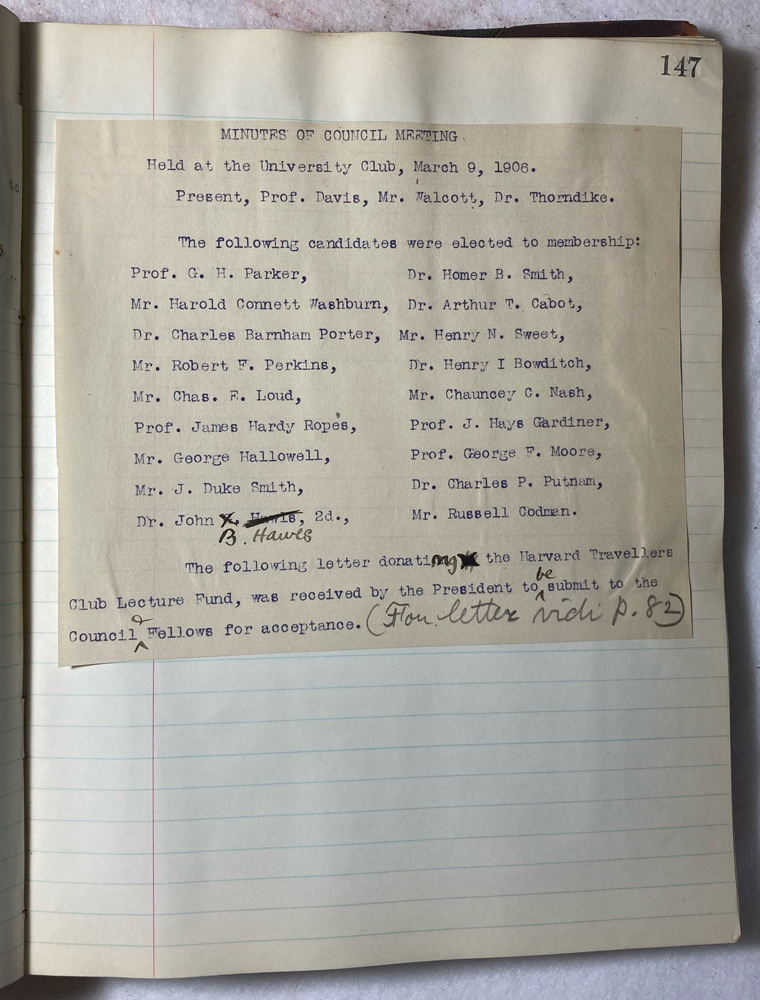 147
MINUTES OF COUNCIL MEETING
Held at the University Club, March 9, 1906.
Present, Prof. Davis, Mr. Walcott, Dr. Thorndike.
The following candidates were elected to membership:
Prof. G. H. Parker, Dr. Homer B. Smith,
Mr. Harold Connett Washburn, Dr. Arthur T. Cabot,
Dr. Charles Barnham Porter, Mr. Henry N. Sweet,
Mr. Robert F. Perkins, Dr. Henry I Bowditch,
Mr. Chas. E. Loud, Mr. Chauncey C. Nash,
Prof. James Hardy Ropes, Prof. J. Hays Gardiner,
Mr. George Hallowell, Prof. George F. Moore,
Mr. J. Duke Smith, Dr. Charles P. Putnam,
Dr. John 2d., Mr. Russell Codman.
B. Hawes
The following letter donating the Harvard Travellers
be
Club Lecture Fund, was received by the President to submit to the
&
Council Fellows for acceptance. (For letter vidi p. 82)